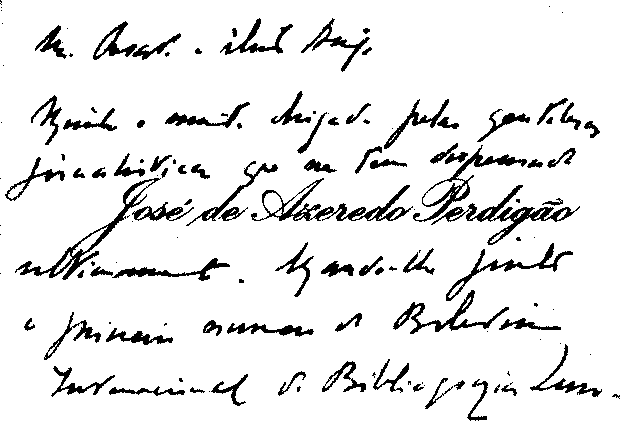 e ilustre Amigo
muito obrigado pelas gentilezas
jornalísticas que me tem dispensado
José de Azeredo Perdigão
ultimamente. Mando-lhe junto
o primeiro numero do Boletim
Internacional de Bibliografia Luso-